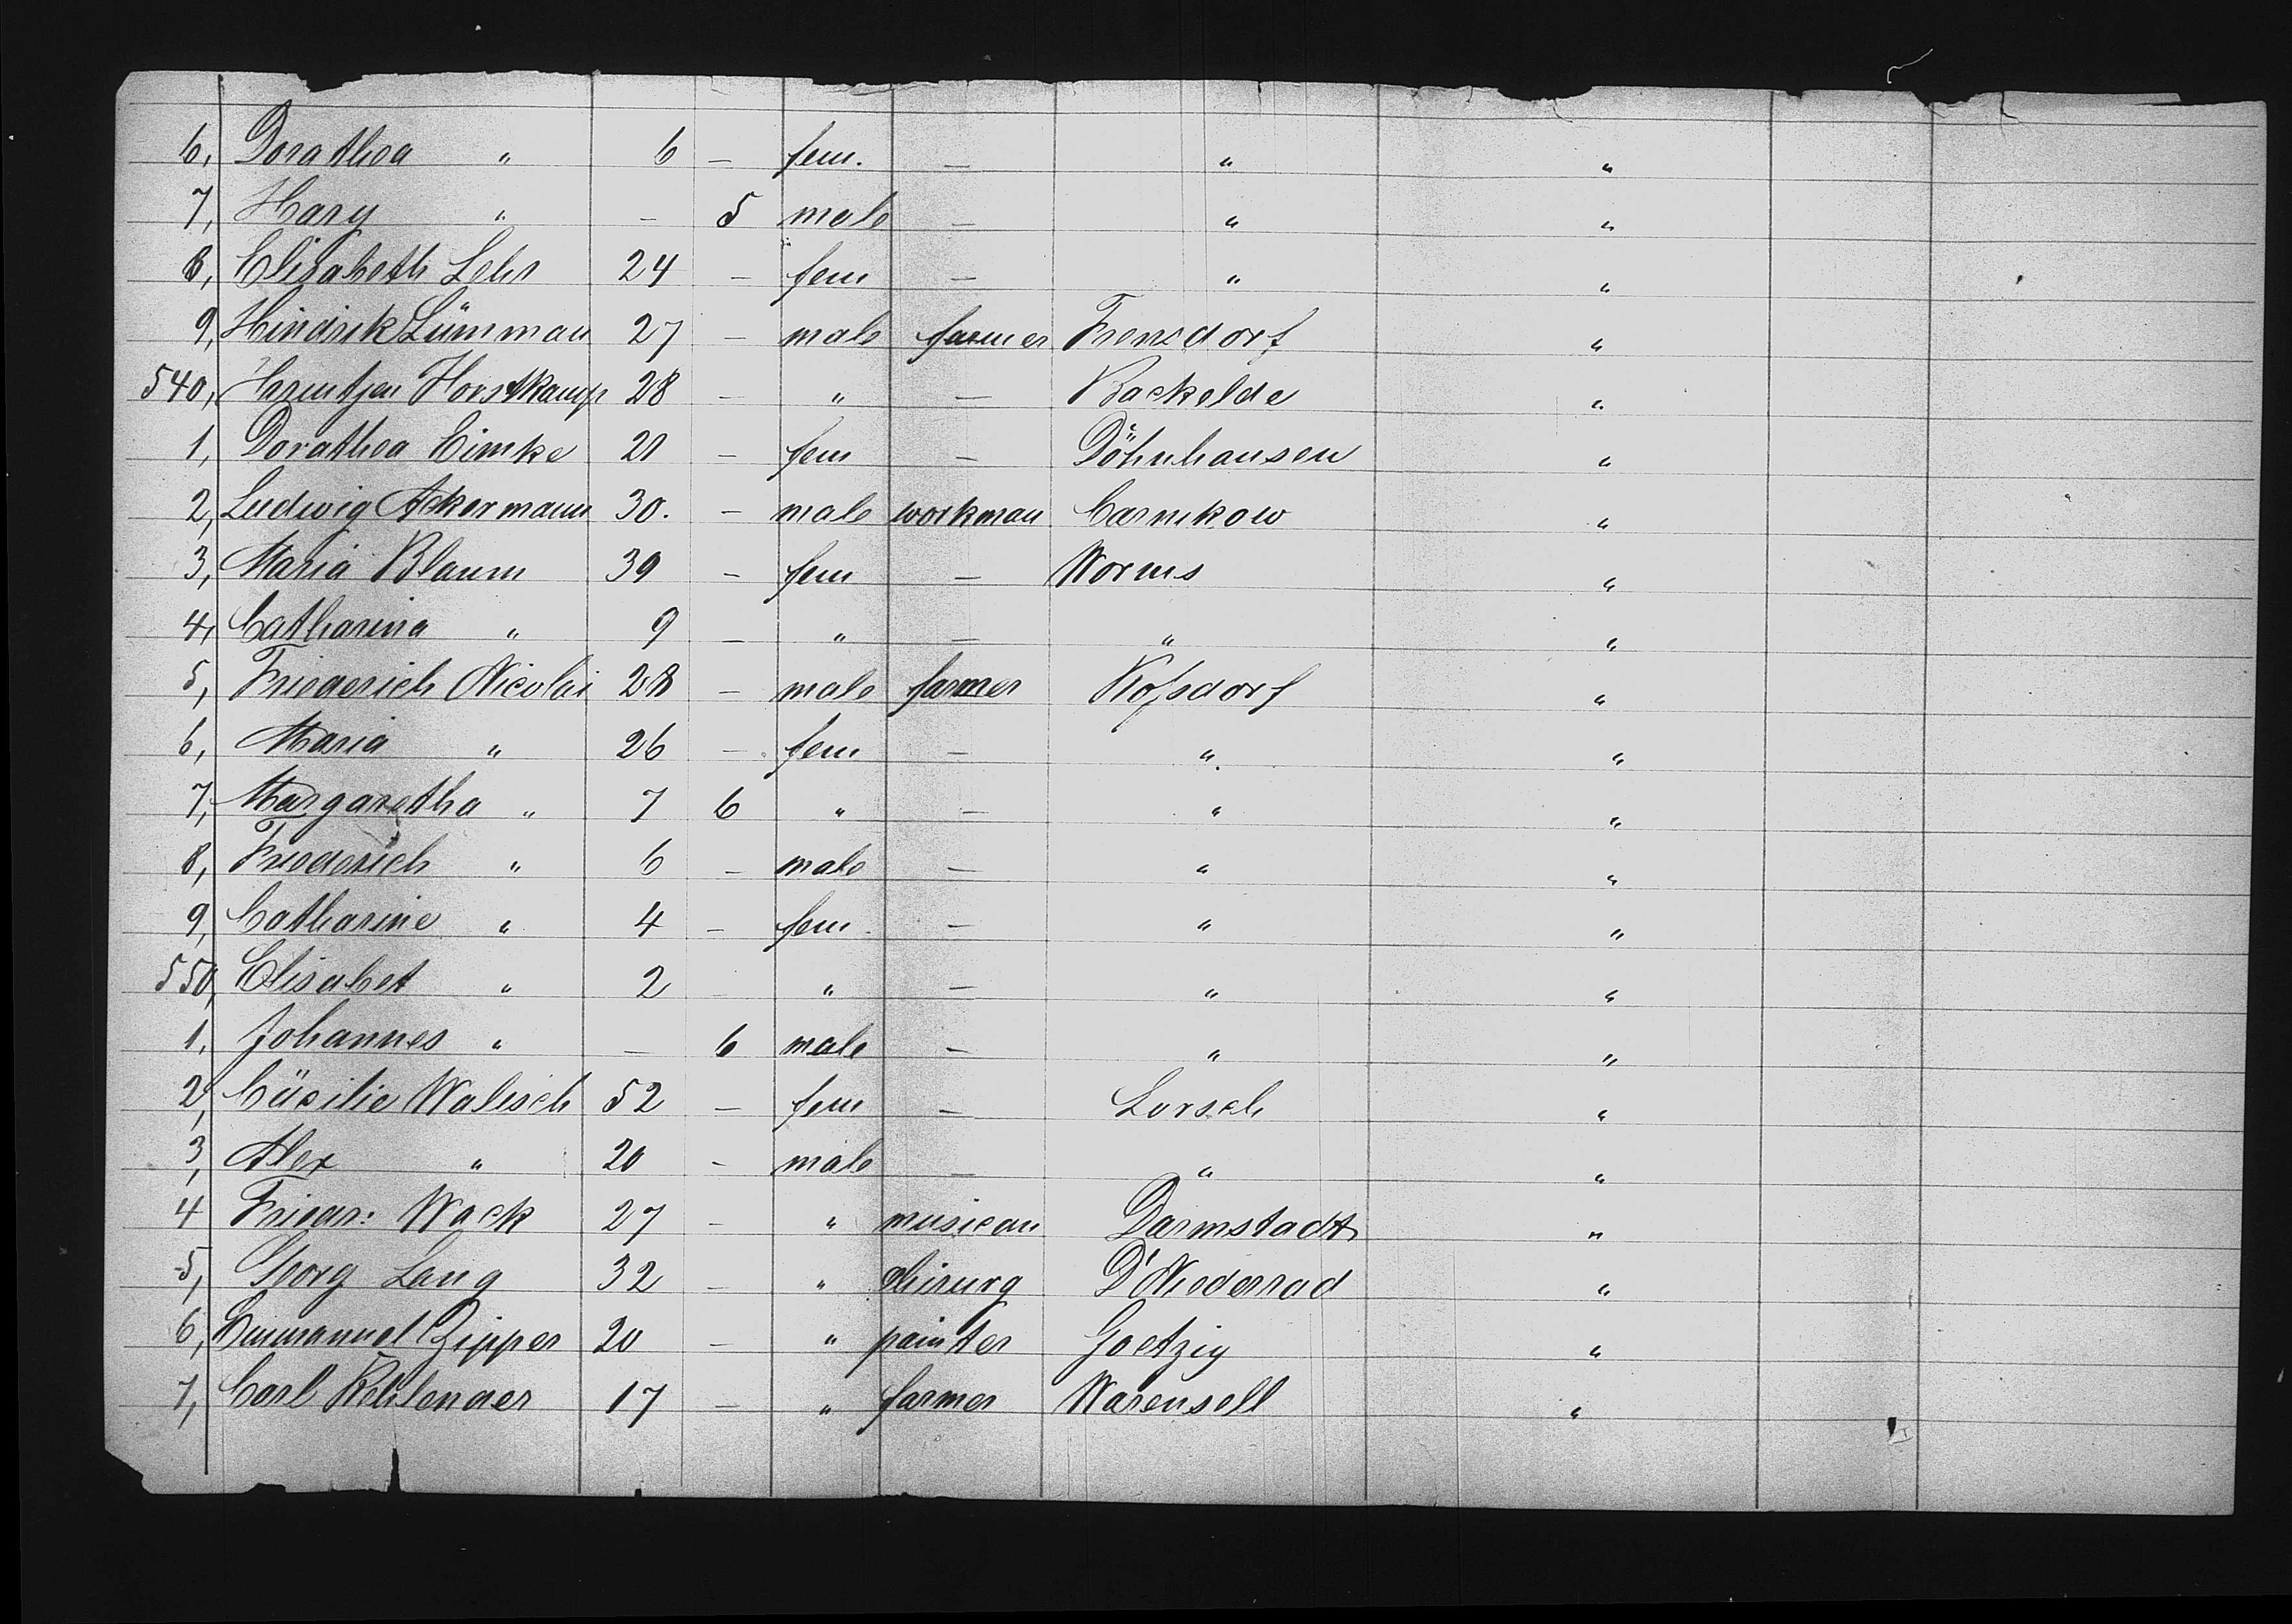 6, Dorathea " 6 – fem. – " "
7, Hary " – 5 male – " "
8, Elisabeth Lehr 24 – fem – " "
9, Hindrik Lümman 27 – male farmer Frensdorf "
540, Harmtjen Horstkamp 28 – " – Backelde "
1, Dorathea Eimke 21 – fem – Döhnhausen "
2, Ludwig Ackermann 30. – male workman Carnikow "
3, Maria Blaum 39 – fem – Worms "
4, Catharina " 9 – " – " "
5, Friederich Nicolai 28 – male farmer Roſsdorf "
6, Maria " 26 – fem – " "
7, Margaretha " 7 6 " – " "
8, Friederich " 6 – male – " "
9, Catharine " 4 – fem – " "
550, Elisabet " 2 " – " "
1, Johannes " – 6 male – " "
2, Cäcilie Walisch 52 – fem – Lorsch "
3, Alex " 20 – male – " "
4 Friedr: Wack 27 – " musican Darmstadt "
5, Georg Lang 32 – " chirurg D' Niederrad "
6, Emmanuel Zipper 20 – " painter Goetzig "
7, Carl Rehlender 17 – " farmer Warensell "